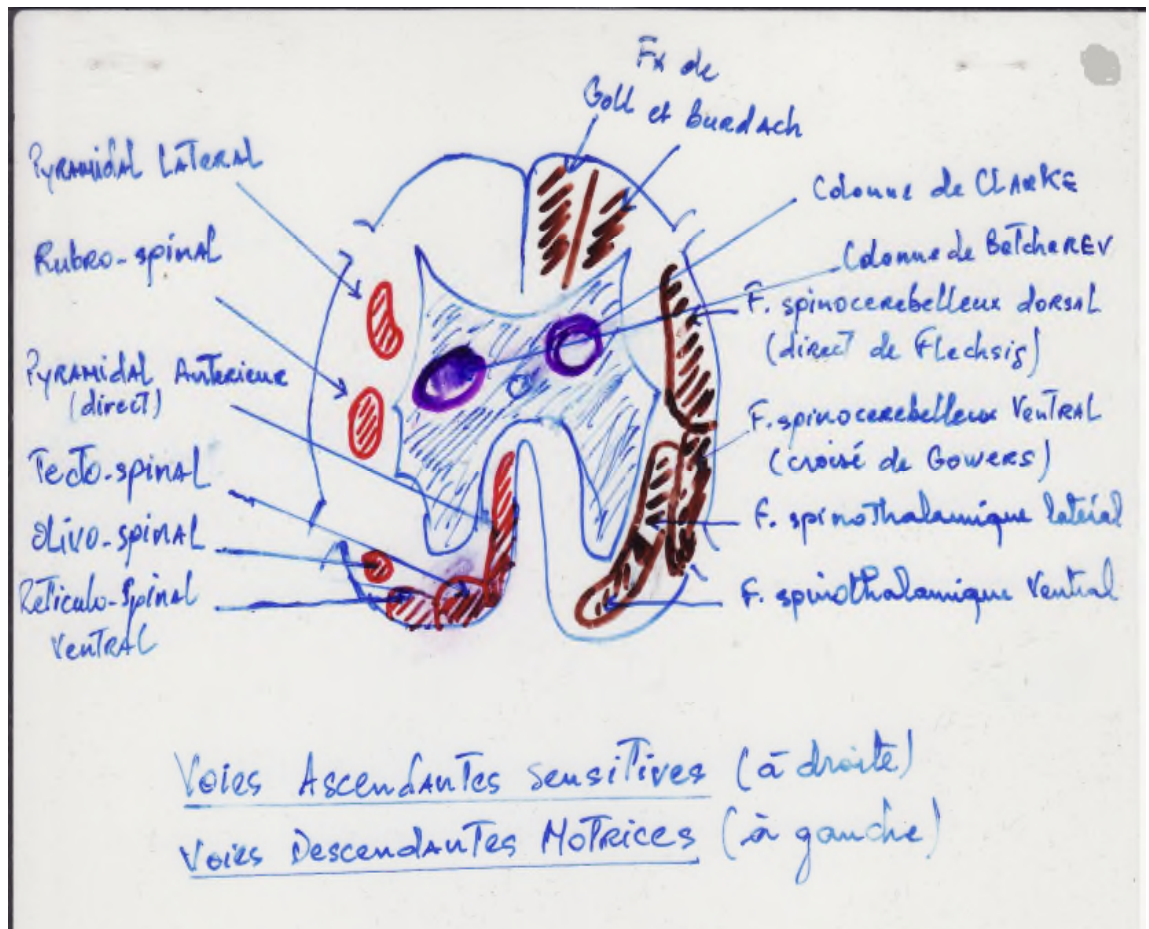 Fx de
Goll et Burdach
Pyramidal Lateral
Rubro-spinal
Pyramidal Anterieur
(direct)
Tecto-spinal
Olivo-spinal
Reticulo-Spinal
Ventral
Colonne de CLARKE
Colonne de BetchereV
F. spinocerebelleux dorsal
(direct de Flechsig)
F. spinocerebelleux Ventral
(croisé de Gowers)
F. spinothalamique latéral
F. spinothalamique Ventral
Voies Ascendantes Sensitives (à droite)
Voies Descendantes Motrices (à gauche)